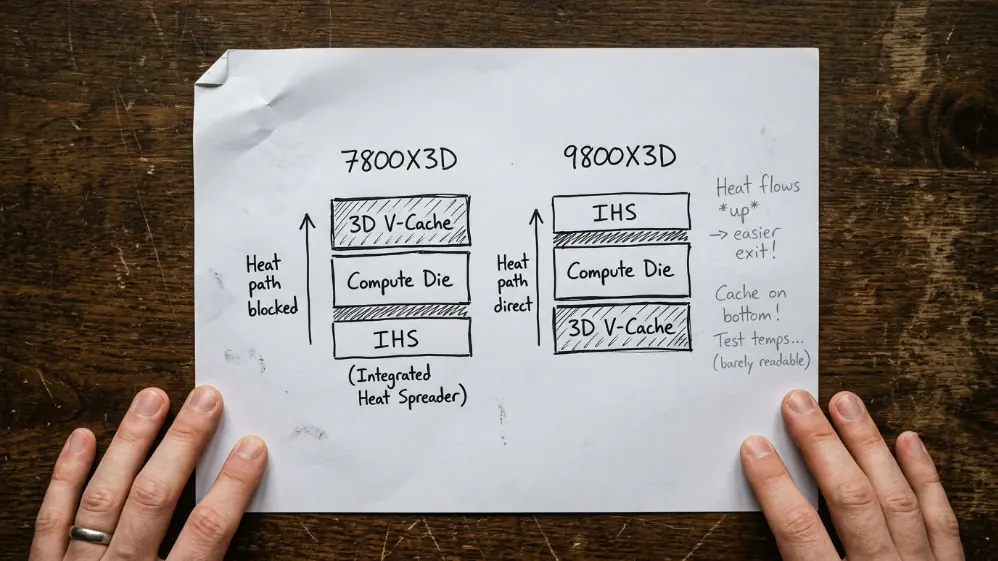 7800X3D
3D V-Cache
Compute Die
IHS
(Integrated
Heat Spreader)
Heat
path
blocked
9800X3D
IHS
Compute Die
3D V-Cache
Heat
path
direct
Heat flows
*up*
→ easier
exit!
Cache on
bottom!
Test temps...
(barely readable)